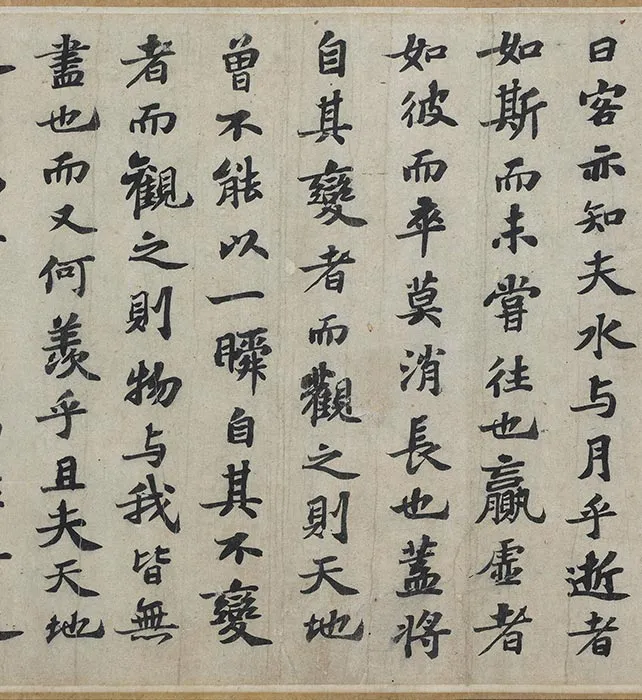 曰客亦知夫水与月乎逝者
如斯而未嘗往也贏虛者
如彼而卒莫消長也蓋將
自其變者而觀之則天地
曾不能以一瞬自其不變
者而觀之則物与我皆無
盡也而又何羨乎且夫天地